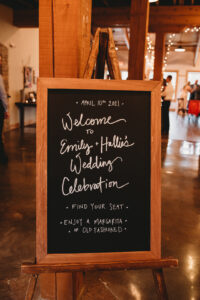 • APRIL 10TH 2021 •
Welcome
TO
Emily + Hallie's
Wedding
Celebration
• FIND YOUR SEAT •
ENJOY A MARGARITA
• OR OLD FASHIONED •